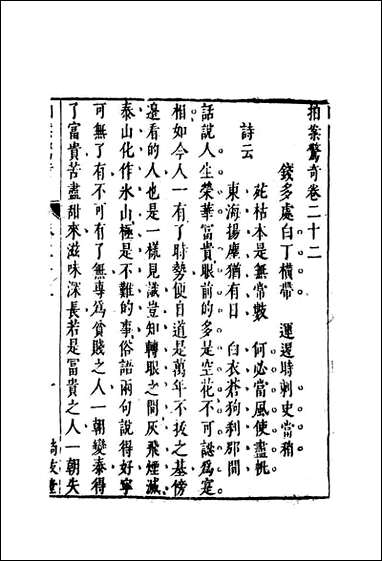 拍案驚奇卷二十二
錢多處白丁橫帶　運退時刺史當稍
詩云
菀枯本是無常數　何必當風使盡帆
東海揚塵猶有日　白衣蒼狗刹那間
話說人生榮華富貴眼前的多是空花不可認爲寔
相如今人一有了時勢便自道是萬年不拔之基傍
邊看的人也是一樣見識豈知轉眼之間灰飛煙滅
泰山化作氷山極是不難的事俗語兩句說得好寧
可無了有不可有了無專爲貧賤之人一朝變泰得
了富貴苦盡甜來滋味深長若是冨貴之人一朝失